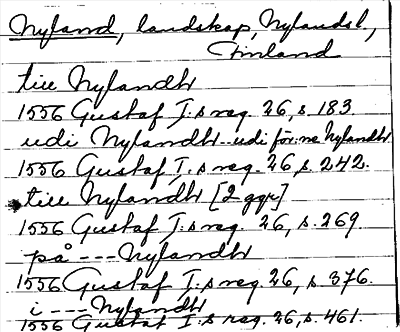 Nyland, landskap, Nylandsl.,
Finland
till Nylandh
1556 Gustaf I:s reg. 26, s. 183.
udi Nylandh--udi för:ne Nylandh
1556 Gustaf I:s reg. 26, s. 242.
till Nylandh [2 ggr]
1556 Gustaf I:s reg. 26, s. 269.
på --- Nylandh
1556 Gustaf I:s reg. 26, s. 376.
i --- Nylandh
1556 Gustaf I:s reg. 26, s. 461.